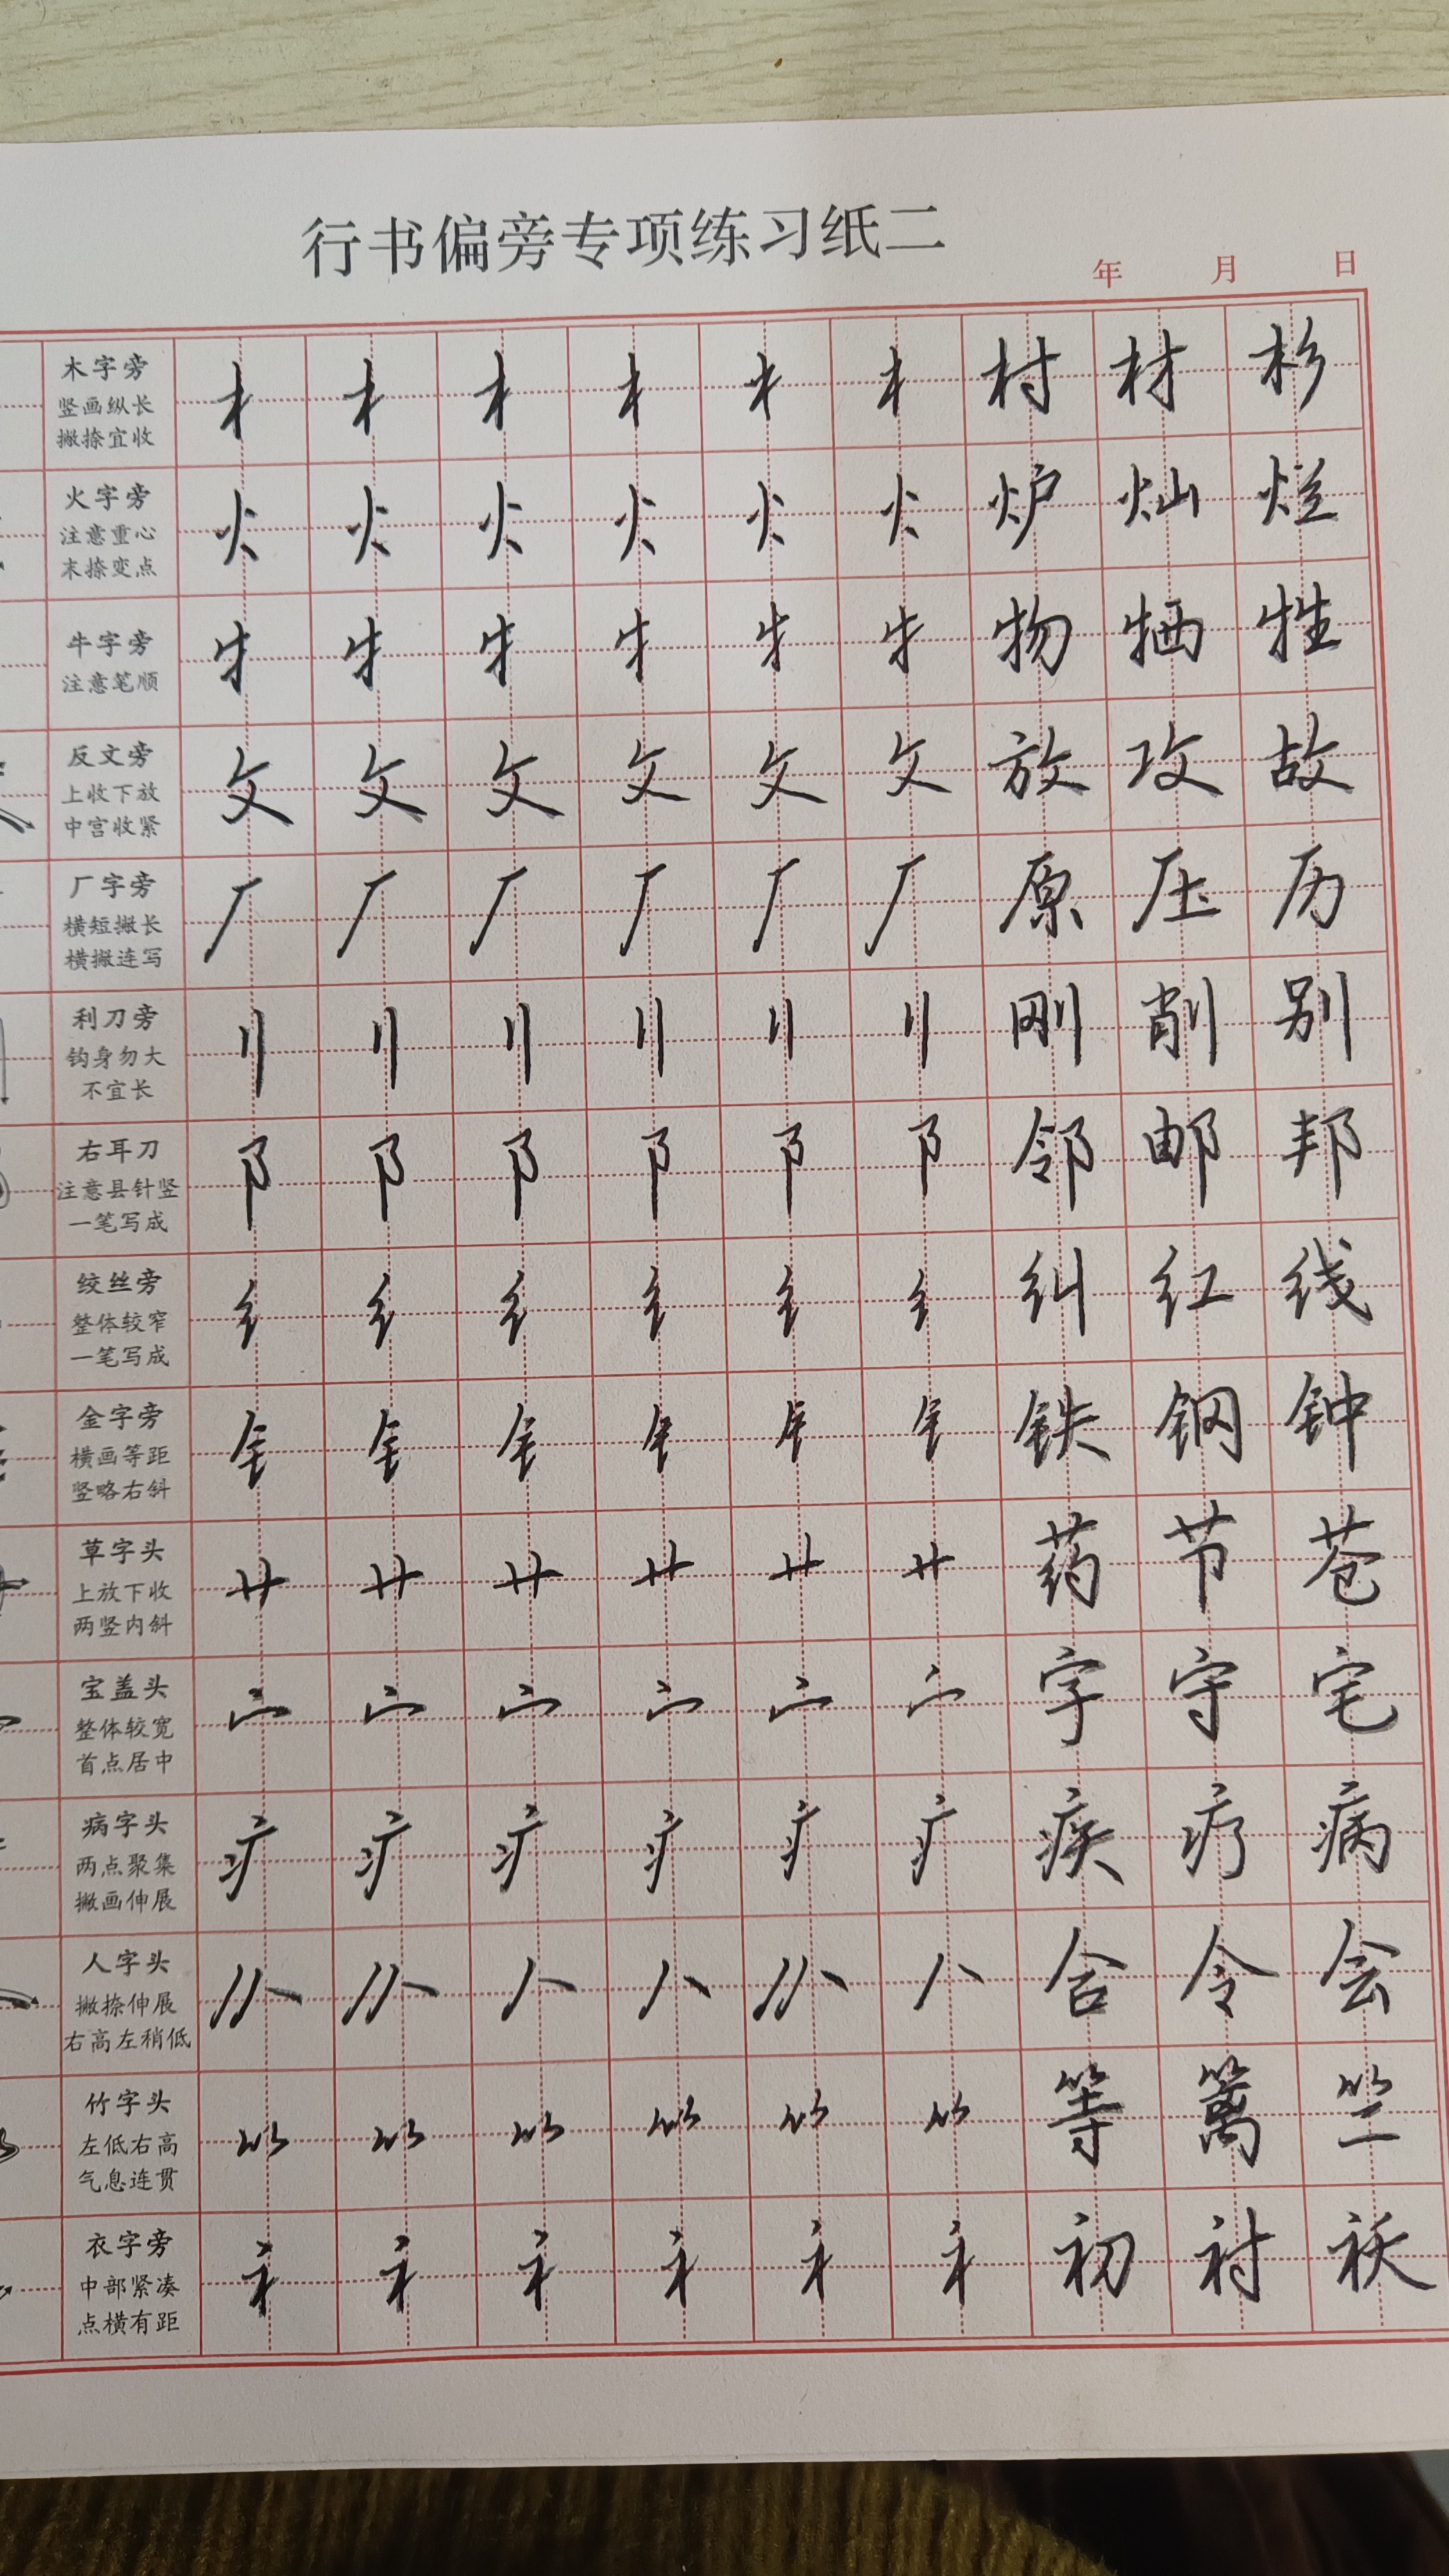 行书偏旁专项练习纸二
年 月 日
木字旁
竖画纵长
撇捺宜收
木 木 木 木 木 木 村 材 杉
火字旁
注意重心
末捺变点
火 火 火 火 火 火 炉 灿 烂
牛字旁
注意笔顺
牜 牜 牜 牜 牜 牜 物 牺 牲
反文旁
上收下放
中宫收紧
攵 攵 攵 攵 攵 攵 放 攻 故
厂字旁
横短撇长
横撇连写
厂 厂 厂 厂 厂 厂 原 压 历
利刀旁
钩身勿大
不宜长
刂 刂 刂 刂 刂 刂 刚 削 别
右耳刀
注意县针竖
一笔写成
阝 阝 阝 阝 阝 阝 邻 邮 邦
绞丝旁
整体较窄
一笔写成
纟 纟 纟 纟 纟 纟 纠 红 线
金字旁
横画等距
竖略右斜
钅 钅 钅 钅 钅 钅 铁 钢 钟
草字头
上放下收
两竖内斜
艹 艹 艹 艹 艹 艹 药 节 苍
宝盖头
整体较宽
首点居中
宀 宀 宀 宀 宀 宀 字 守 宅
病字头
两点聚集
撇画伸展
疒 疒 疒 疒 疒 疒 疾 疗 病
人字头
撇捺伸展
右高左稍低
人 人 人 人 人 人 合 令 会
竹字头
左低右高
气息连贯
⺮ ⺮ ⺮ ⺮ ⺮ ⺮ 等 篱 竺
衣字旁
中部紧凑
点横有距
衤 衤 衤 衤 衤 衤 初 衬 袄